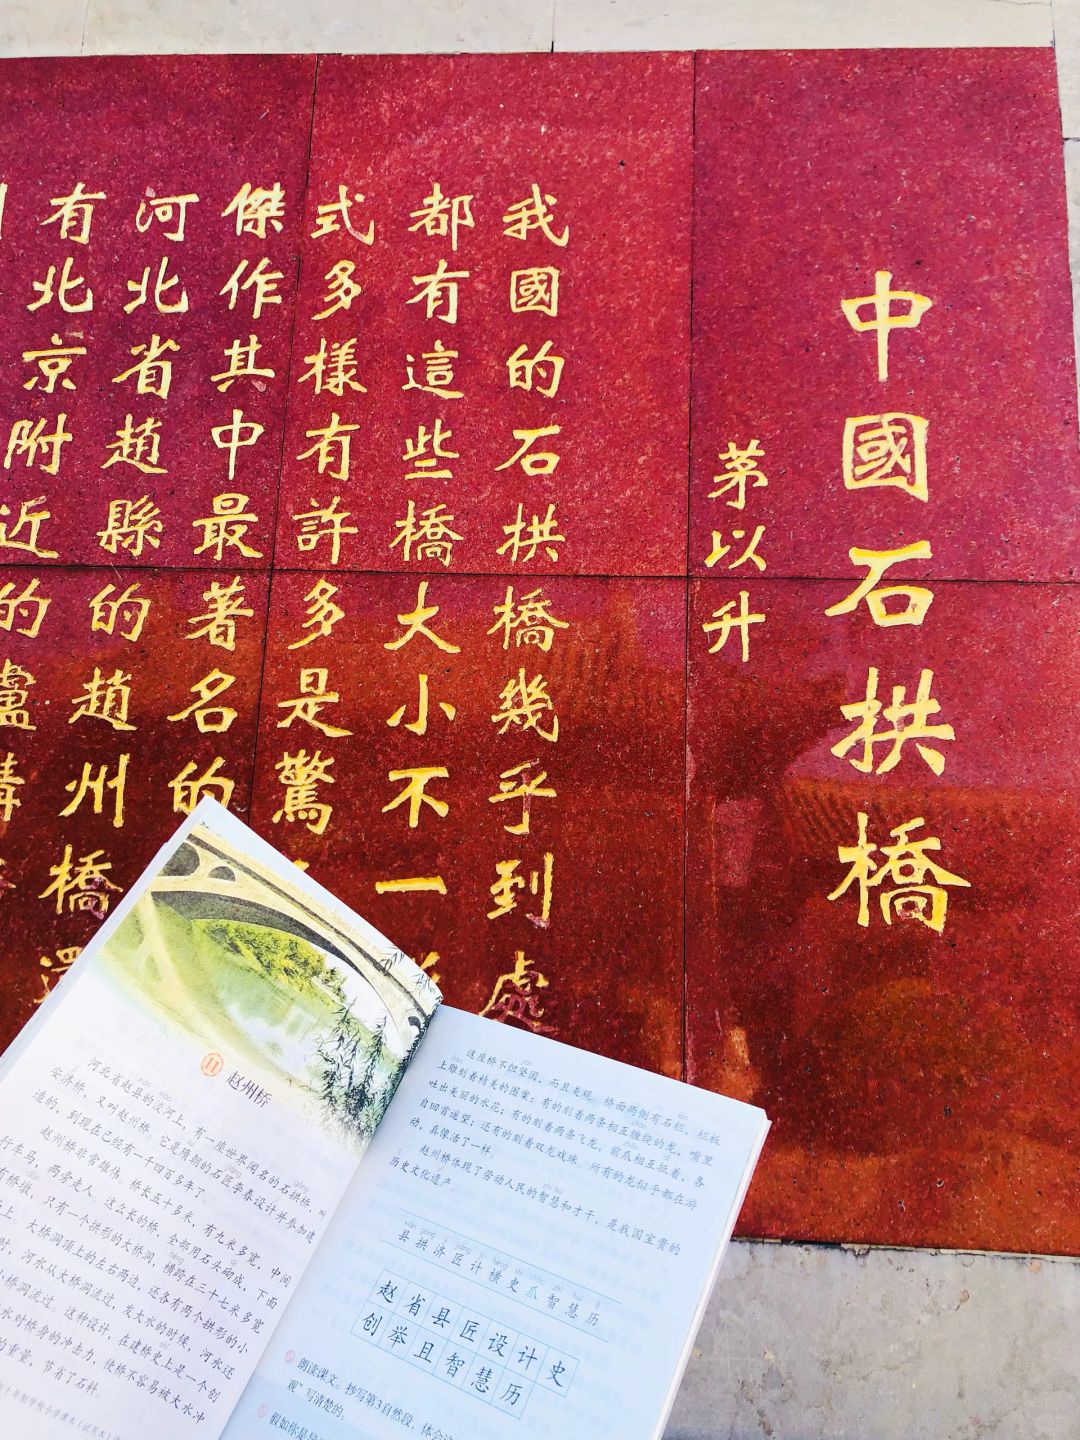 中國石拱橋
茅以升
我國的石拱橋幾乎到處
都有這些橋大小不一
式多樣有許多是驚
傑作其中最著名的
河北省趙縣的趙州橋還
有北京附近的盧溝
11 赵州桥
河北省赵县的洨河上，有一座世界闻名的石拱桥，叫
安济桥，又叫赵州桥。它是隋朝的石匠李春设计并参加建
造的，到现在已经有一千四百多年了。
赵州桥非常雄伟。桥长五十多米，有九米多宽，中间
行车马，两旁走人。这么长的桥，全部用石头砌成，下面
有桥墩，只有一个拱形的大桥洞，横跨在三十七米多宽
上。大桥洞顶上的左右两边，还各有两个拱形的小
时，河水从大桥洞流过，发大水的时候，河水还
小桥洞流过。这种设计，在建桥史上是一个创
水对桥身的冲击力，使桥不容易被大水冲
的重量，节省了石料。
十年制学校小学课本（试用本）
这座桥不但坚固，而且美观。桥面两侧有石栏，栏板
上雕刻着精美的图案：有的刻着两条相互缠绕的龙，嘴里
吐出美丽的水花；有的刻着两条飞龙，前爪相互抵着，各
自回首遥望；还有的刻着双龙戏珠。所有的龙似乎都在游
动，真像活了一样。
赵州桥体现了劳动人民的智慧和才干，是我国宝贵的
历史文化遗产。
xiàn gǒng jì jiàng jì héng shǐ zhǎo zhì huì lì
县 拱 济 匠 计 横 史 爪 智 慧 历
赵 省 县 匠 设 计 史
创 举 且 智 慧 历
朗读课文。抄写第3自然段，体会
观”写清楚的。
假如你是